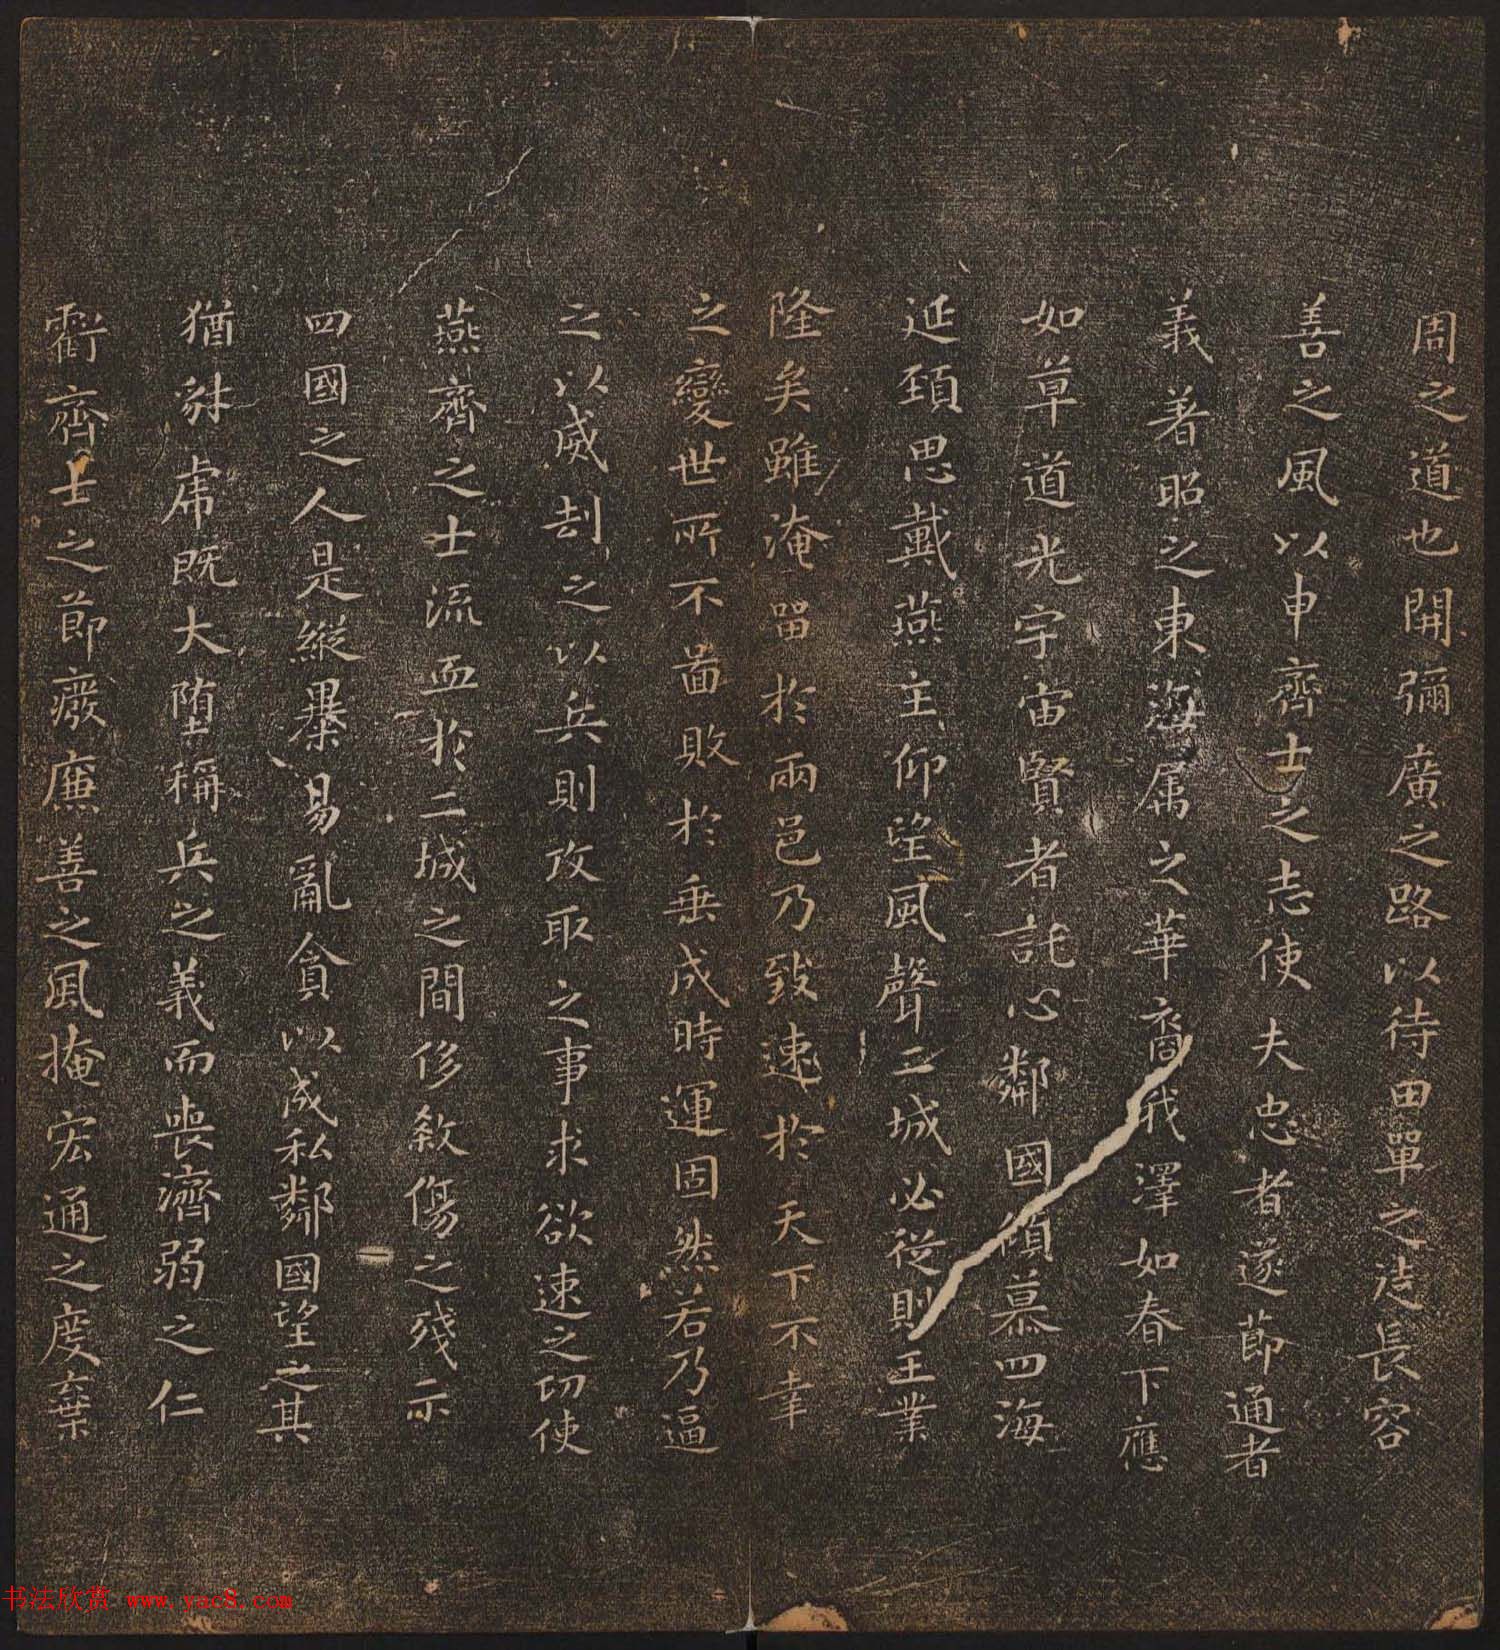 周之道也開彌廣之路以待田單之徒長容
善之風以申齊士之志使夫忠者遂節通者
義著昭之東海属之華裔我澤如春下應
如草道光宇宙賢者託心鄰國傾慕四海
延頚思戴燕主仰望風聲二城必從則王業
隆矣雖淹留於兩邑乃致速於天下不幸
之變世所不啚敗於垂成時運固然若乃逼
之以威劫之以兵則攻取之事求欲速之功使
燕齊之士流血於二城之間侈敘傷之殘示
四國之人是縱暴易亂貪以成私鄰國望之其
猶豺虎既大堕稱兵之義而喪濟弱之仁
虧齊士之節廢廉善之風掩宏通之度棄
书法欣赏 www.yac8.com